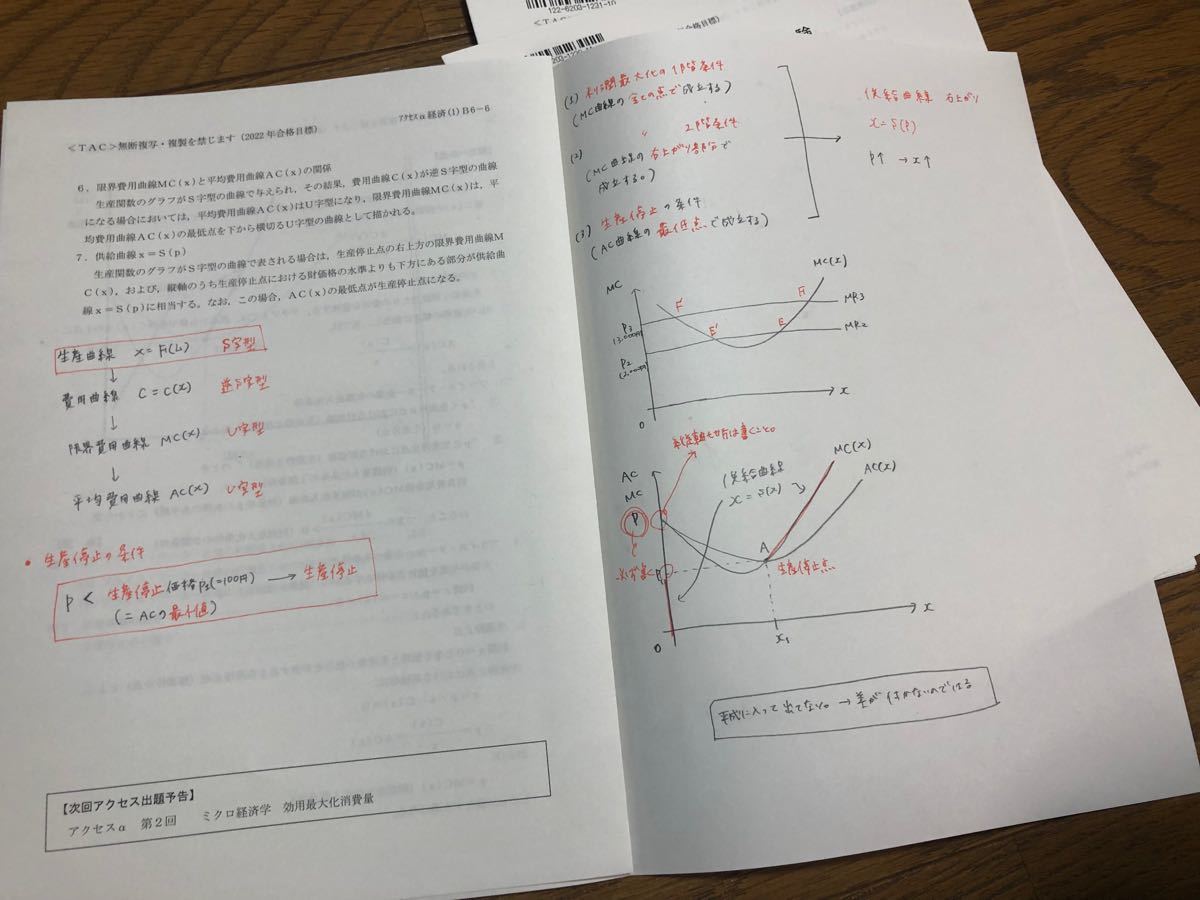 122-6203-1231-10
<TAC>
合格目標)
<TAC>無断複写・複製を禁じます(2022年合格目標)
アクセスα 経済(1)B6-6
6.限界費用曲線MC(x)と平均費用曲線AC(x)の関係
生産関数のグラフがS字型の曲線で与えられ,その結果,費用曲線C(x)が逆S字型の曲線
になる場合においては,平均費用曲線AC(x)はU字型になり,限界費用曲線MC(x)は,平
均費用曲線AC(x)の最低点を下から横切るU字型の曲線として描かれる。
7.供給曲線x=S(p)
生産関数のグラフがS字型の曲線で表される場合は,生産停止点の右上方の限界費用曲線M
C(x),および,縦軸のうち生産停止点における財価格の水準よりも下方にある部分が供給曲
線x=S(p)に相当する。なお,この場合,AC(x)の最低点が生産停止点になる。
生産曲線 x=F(L) S字型
↓
費用曲線 C=C(x) 逆S字型
↓
限界費用曲線 MC(x) U字型
↓
平均費用曲線 AC(x) U字型
• 生産停止の条件
P < 生産停止価格P1(=100円) → 生産停止
(=ACの最小値)
【次回アクセス出題予告】
アクセスα 第2回 ミクロ経済学 効用最大化消費量
(1) 利潤最大化の1階条件
(MC曲線の全ての点で成立する)
(2) 〃 2階条件
(MC曲線の右上がり部分で
成立する。)
(3) 生産停止の条件
(AC曲線の最低点で成立する)
供給曲線 右上がり
x=S(P)
P↑ →x↑
MC
MC(x)
F'
F
MR3
P3
E'
E
MR2
P2
0
x
縦軸も
AC
MC
P
供給曲線
x=S(x)
MC(x)
AC(x)
A
必ず書く
生産停止点
0
x1
x
平成に入って出てない。→差が付かないので